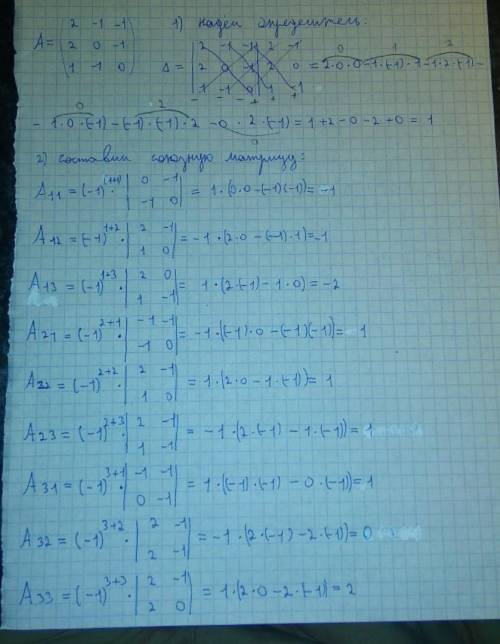 A= ( 2 -1 -1 1) Надём определитель:
2 0 -1
1 -1 0 )
Δ = | 2 -1 -1 | 2 -1
2 0 -1 | 2 0 = 2·0·0 -1·(-1)·1 -1·2·(-1) -
1 -1 0 | 1 -1
- - - + + +
0 1 2
0 2
- 1·0·(-1) - (-1)·(-1)·2 - 0·2·(-1) = 1+2-0-2+0 = 1
0
2) составим союзную матрицу:
A11 = (-1)^(1+1) · | 0 -1 ; -1 0 | = 1·(0·0 - (-1)(-1)) = -1
A12 = (-1)^1+2 · | 2 -1 ; 1 0 | = -1·(2·0 - (-1)·1) = -1
A13 = (-1)^1+3 · | 2 0 ; 1 -1 | = 1·(2·(-1) - 1·0) = -2
A21 = (-1)^2+1 · | -1 -1 ; -1 0 | = -1·((-1)·0 - (-1)(-1)) = 1
A22 = (-1)^2+2 · | 2 -1 ; 1 0 | = 1·(2·0 - 1·(-1)) = 1
A23 = (-1)^2+3 · | 2 -1 ; 1 -1 | = -1·(2·(-1) - 1·(-1)) = 1
A31 = (-1)^3+1 · | -1 -1 ; 0 -1 | = 1·((-1)·(-1) - 0·(-1)) = 1
A32 = (-1)^3+2 · | 2 -1 ; 2 -1 | = -1·(2·(-1) - 2·(-1)) = 0
A33 = (-1)^3+3 · | 2 -1 ; 2 0 | = 1·(2·0 - 2·(-1)) = 2